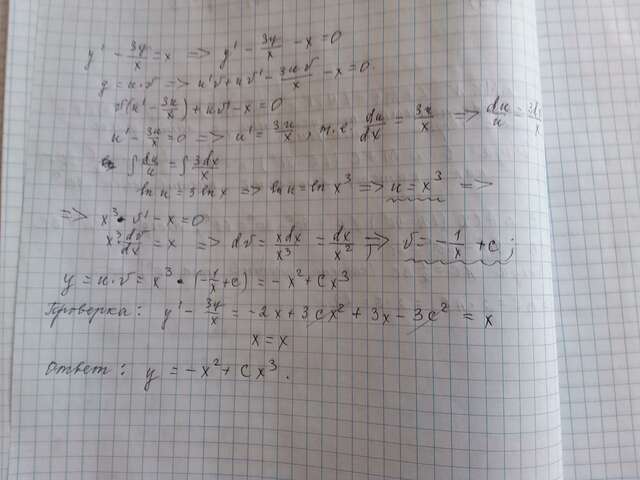 y' - 3y/x = x => y' - 3y/x - x = 0
y = u·v => u'v + uv' - 3uv/x - x = 0.
v(u' - 3u/x) + uv' - x = 0
u' - 3u/x = 0 => u' = 3u/x, т.е du/dx = 3u/x => du/u = 3dx/x
∫ du/u = ∫ 3dx/x
ln u = 3 ln x => ln u = ln x³ => u = x³ =>
=> x³ · v' - x = 0
x³ dv/dx = x => dv = xdx/x³ = dx/x² => v = -1/x + c;
y = u·v = x³ · (-1/x + c) = -x² + cx³
Проверка: y' - 3y/x = -2x + 3cx² + 3x - 3c² = x
x = x
Ответ: y = -x² + cx³.